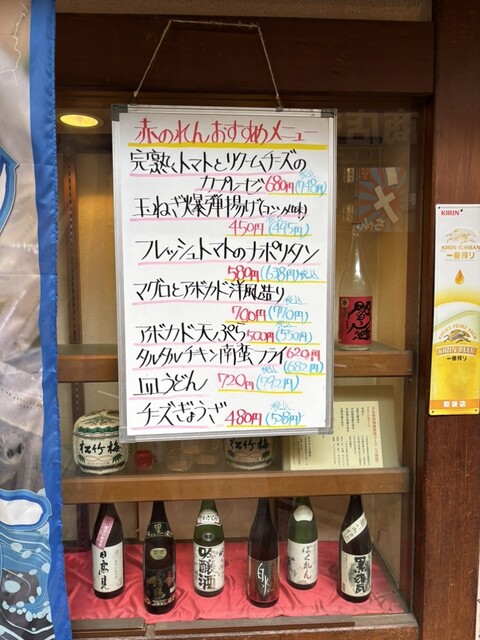 赤のれんおすすめメニュー
完熟トマトとクリームチーズの
カプレーゼ 680円(748円)
玉ねぎ爆弾揚げ(コンソメ味)
税込
450円(495円)
フレッシュトマトのナポリタン
580円(638円)税込
マグロとアボカド洋風造り
税込
700円(770円)
税込
アボカド天ぷら 500円(550円)
タルタルチキン南蛮フライ 620円
税込(682円)
皿うどん 720円(792円)
税込
チーズぎょうざ 480円(528円)
KIRIN
KIRIN ICHIBAN
一番搾り
KIRIN BEER
取扱店
松竹梅
日高見
吟醸酒
白水
ばくれん
黒龍